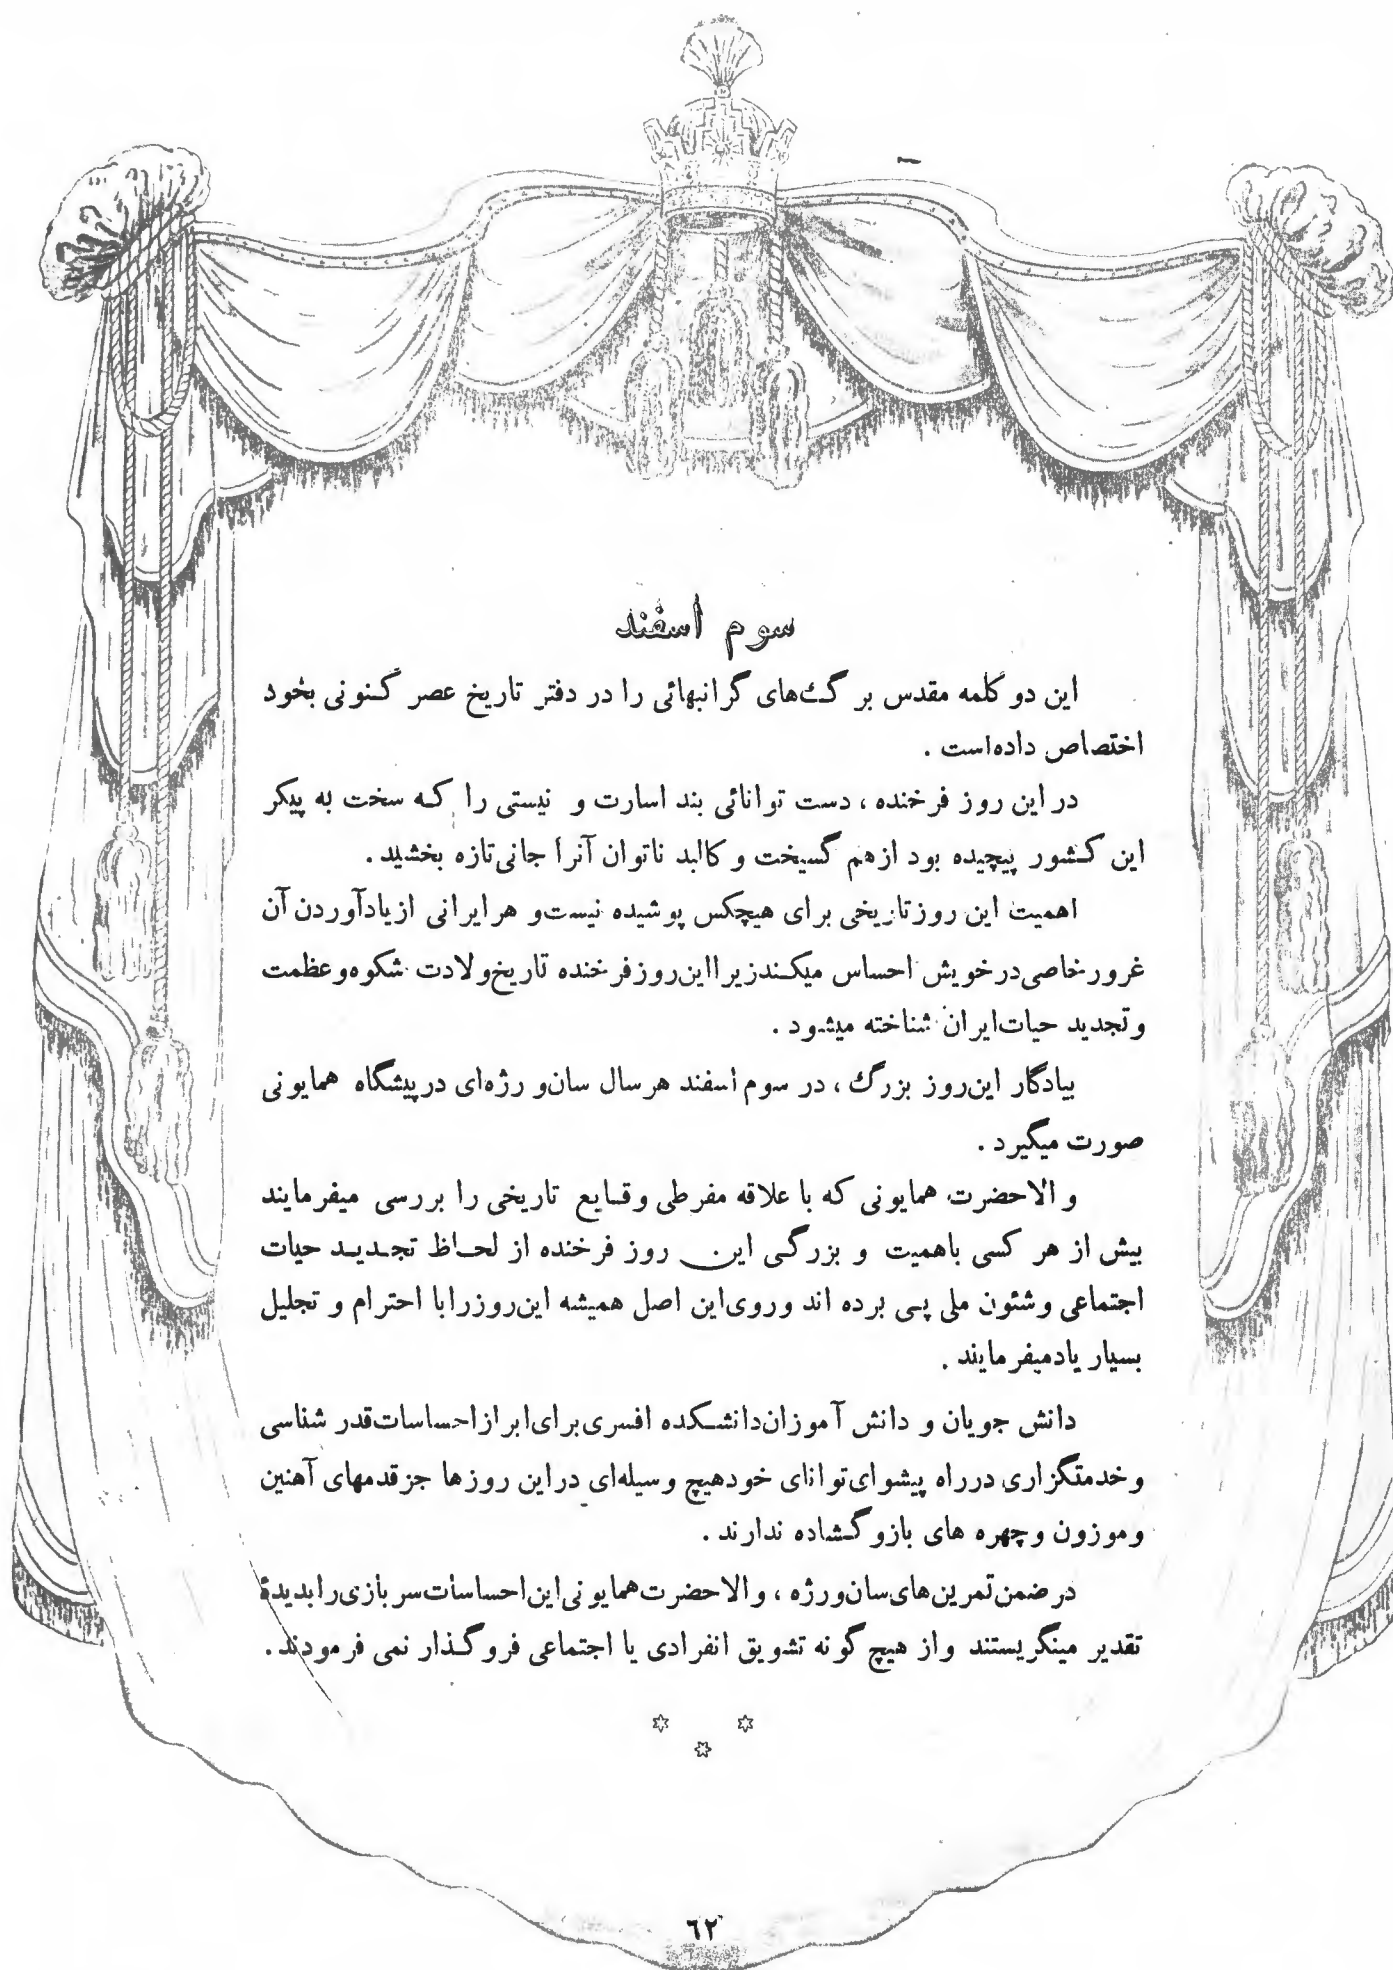 سوم اسفند
این دو کلمه مقدس برگ‌های گرانبهائی را در دفتر تاریخ عصر کنونی بخود
اختصاص داده‌است .
در این روز فرخنده ، دست توانائی بند اسارت و نیستی را که سخت به پیکر
این کشور پیچیده بود ازهم گسیخت و کالبد ناتوان آنرا جانی‌تازه بخشید .
اهمیت این روزتاریخی برای هیچکس پوشیده نیست‌و هرایرانی ازیادآوردن آن
غرورخاصی‌درخویش احساس میکندزیرااین‌روزفرخنده تاریخ‌ولادت شکوه‌وعظمت
وتجدید حیات‌ایران شناخته میشود .
بیادگار این‌روز بزرگ ، در سوم اسفند هرسال سان‌و رژه‌ای درپیشگاه همایونی
صورت میگیرد .
والاحضرت همایونی که با علاقه مفرطی وقایع تاریخی را بررسی میفرمایند
بیش از هر کسی باهمیت و بزرگی این روز فرخنده از لحاظ تجدید حیات
اجتماعی وشئون ملی پی برده اند وروی‌این اصل همیشه این‌روزرابا احترام و تجلیل
بسیار یادمیفرمایند .
دانش جویان و دانش آموزان‌دانشکده افسری‌برای‌ابرازاحساسات‌قدر شناسی
وخدمتگزاری درراه پیشوای‌توانای خودهیچ وسیله‌ای دراین روزها جزقدمهای آهنین
وموزون وچهره های بازوگشاده ندارند .
درضمن‌تمرین‌های‌سان‌ورژه ، والاحضرت‌همایونی‌این‌احساسات‌سربازی‌رابدیدهٔ
تقدیر مینگریستند واز هیچ گونه تشویق انفرادی یا اجتماعی فروگذار نمی فرمودند .
۶۲